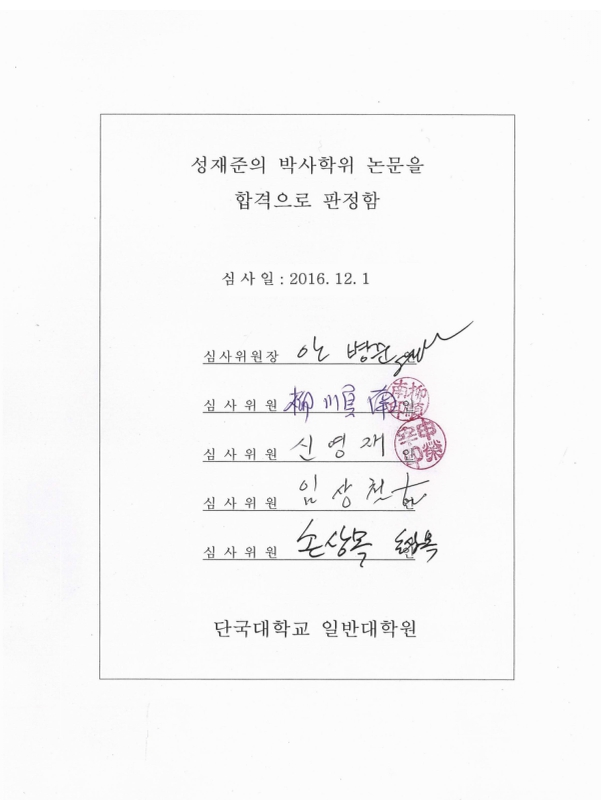 성재준의 박사학위 논문을
합격으로 판정함
심 사 일 : 2016. 12. 1
심사위원장 안 병준
심 사 위 원 柳 順 南 인
심 사 위 원 신 영 재 인
심 사 위 원 임 상 철
심 사 위 원 손상목
단국대학교 일반대학원